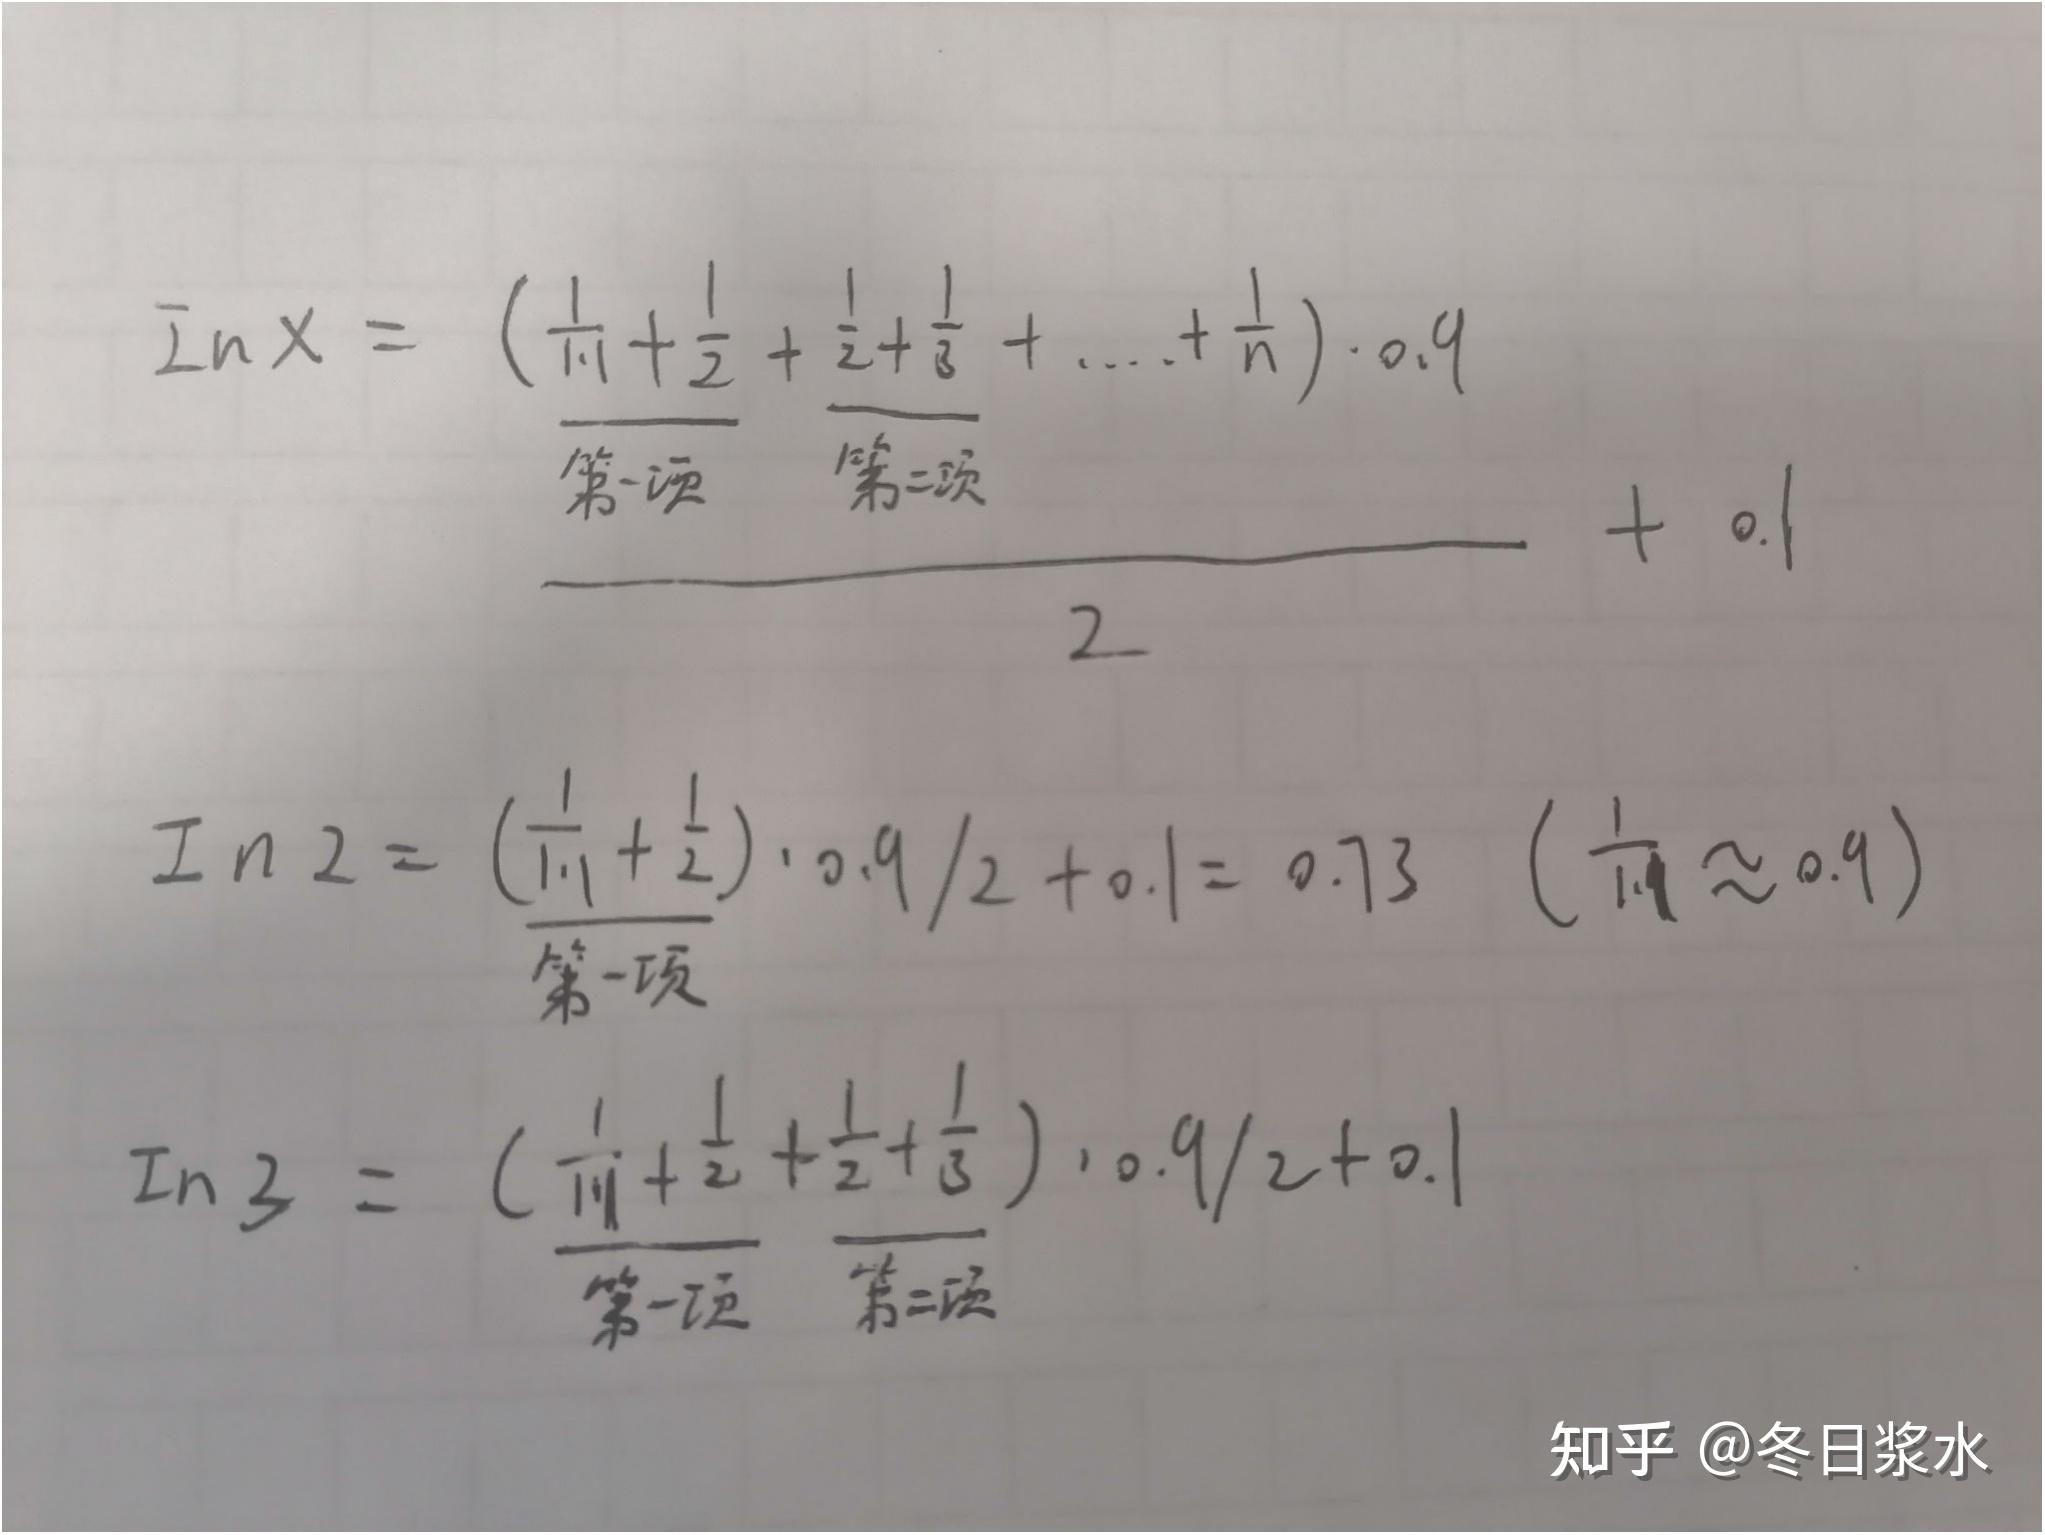 Inx = (1/1.1 + 1/2 + 1/2 + 1/3 + .... + 1/n) · 0.9
第一项 第二项
+ 0.1
2
In2 = (1/1.1 + 1/2) · 0.9/2 + 0.1 = 0.73 (1/1.1 ≈ 0.9)
第一项
In3 = (1/1.1 + 1/2 + 1/2 + 1/3) · 0.9/2 + 0.1
第一项 第二项
知乎 @冬日浆水